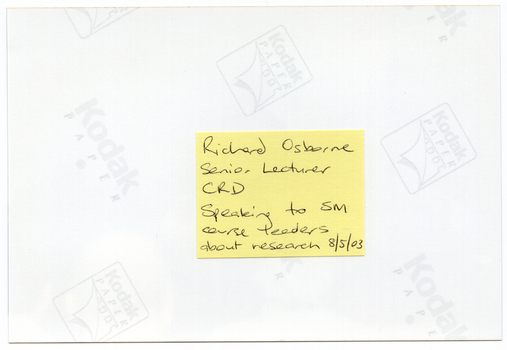 Kodak
PAPER
Kodak
PAPER
Kodak
PAPER
Richard Osborne
Senior Lecturer
CRD
Speaking to SM
course leaders
about research 8/5/03
Kodak
PAPER
Kodak
PAPER